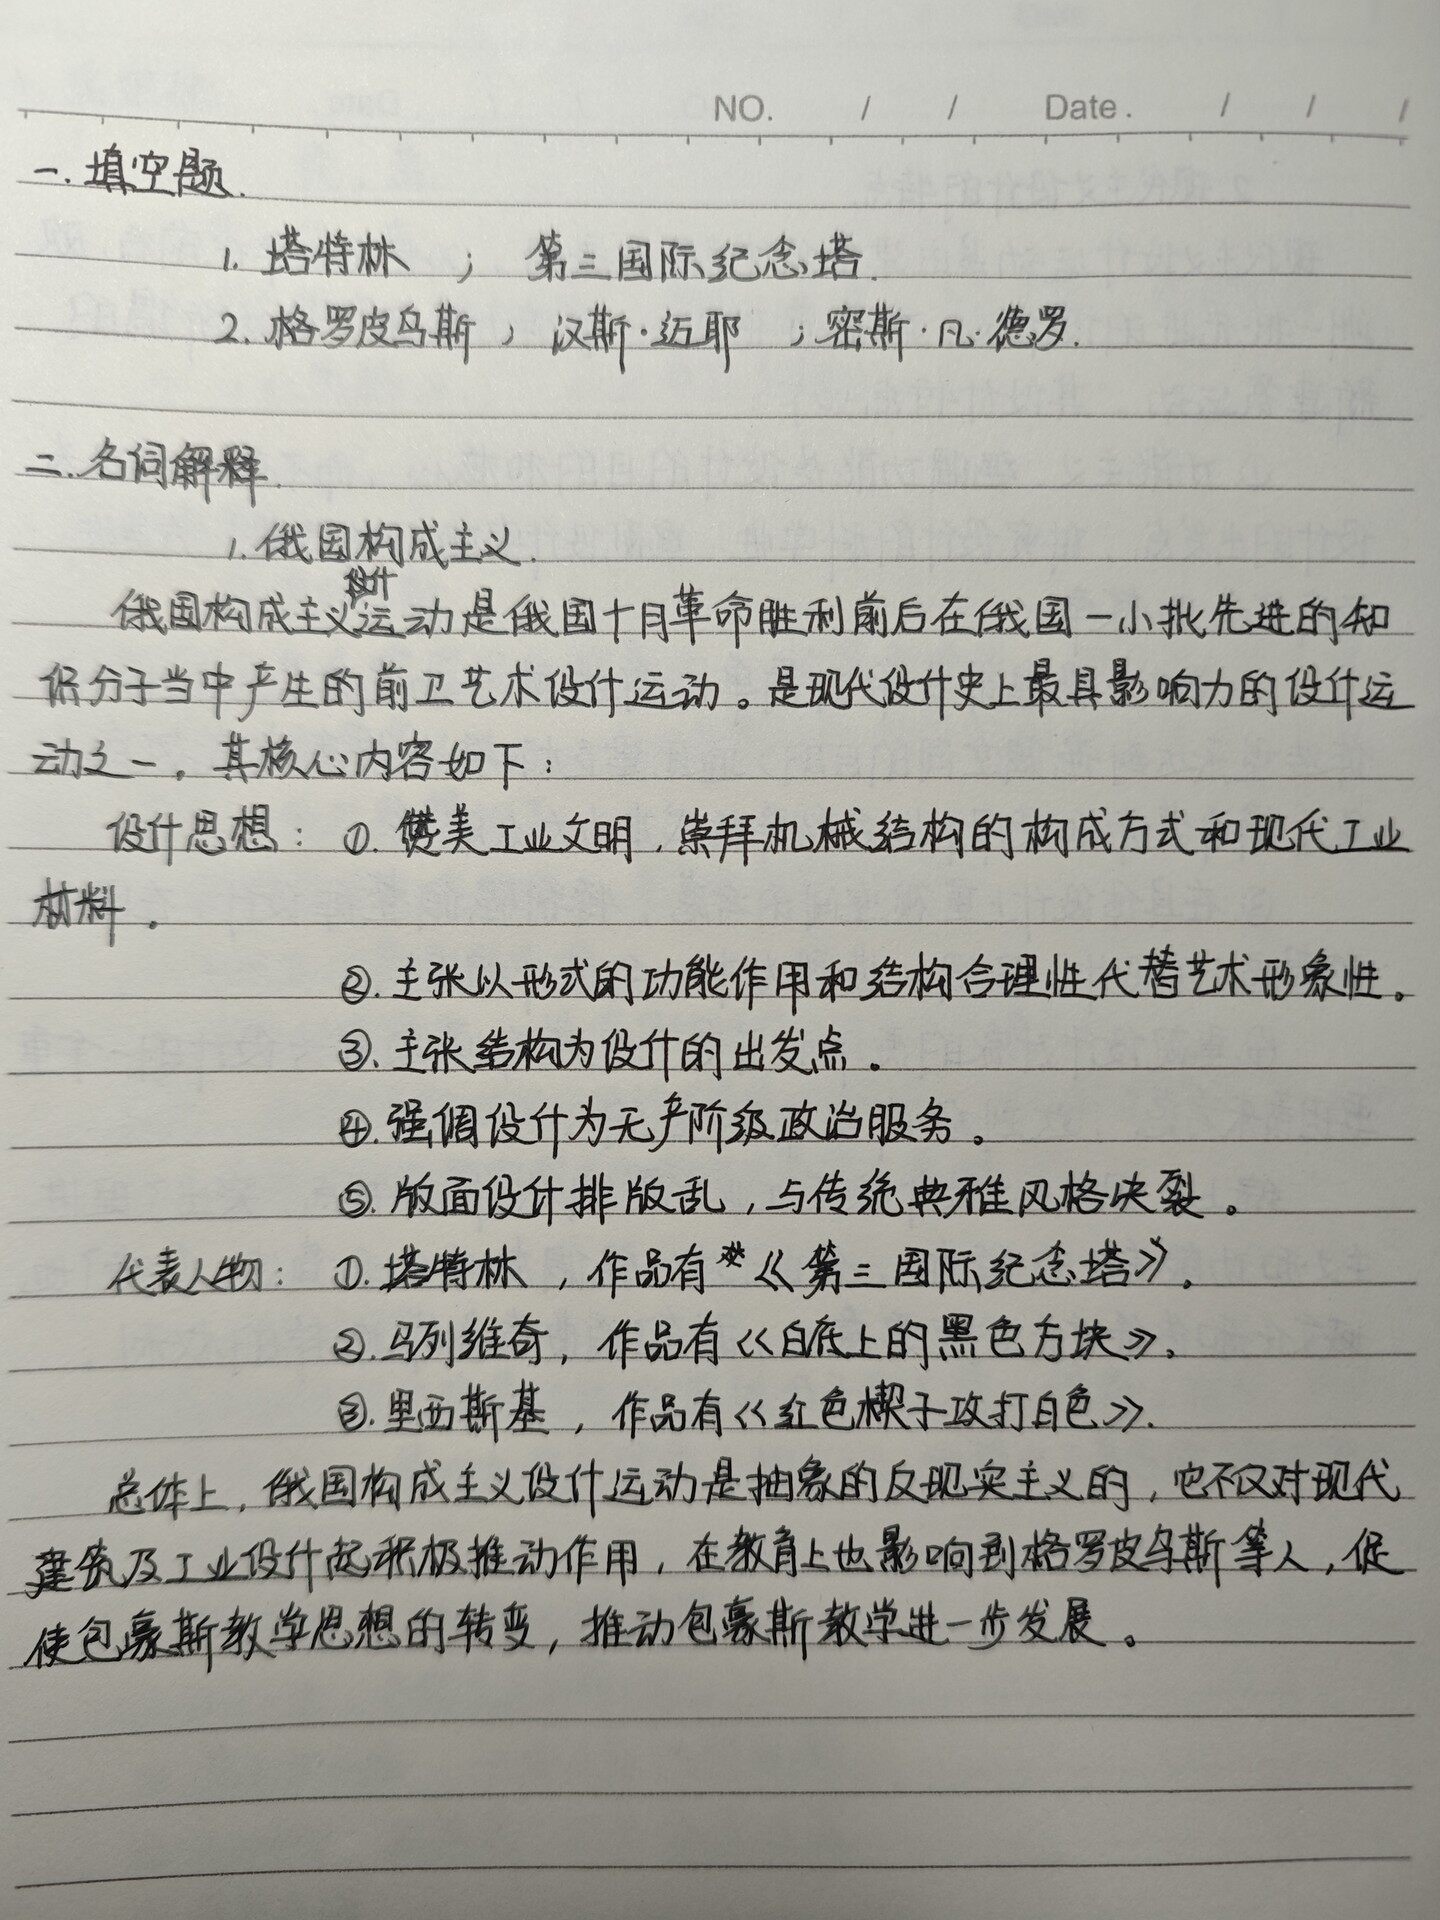 NO. / / Date. / / /
一.填空题.
1. 塔特林 ; 第三国际纪念塔.
2. 格罗皮乌斯 ; 汉斯·迈耶 ; 密斯·凡·德罗.
二.名词解释.
1. 俄国构成主义.
俄国构成主义设计运动是俄国十月革命胜利前后在俄国一小批先进的知
识分子当中产生的前卫艺术设计运动。是现代设计史上最具影响力的设计运
动之一。其核心内容如下:
设计思想: ①. 赞美工业文明,崇拜机械结构的构成方式和现代工业
材料。
②. 主张以形式的功能作用和结构合理性代替艺术形象性。
③. 主张结构为设计的出发点。
④. 强调设计为无产阶级政治服务。
⑤. 版面设计排版乱,与传统典雅风格决裂。
代表人物: ①. 塔特林,作品有《第三国际纪念塔》。
②. 马列维奇,作品有《白底上的黑色方块》。
③. 里西斯基,作品有《红色楔子攻打白色》.
总体上,俄国构成主义设计运动是抽象的反现实主义的,它不仅对现代
建筑及工业设计起积极推动作用,在教育上也影响到格罗皮乌斯等人,促
使包豪斯教学思想的转变,推动包豪斯教学进一步发展。